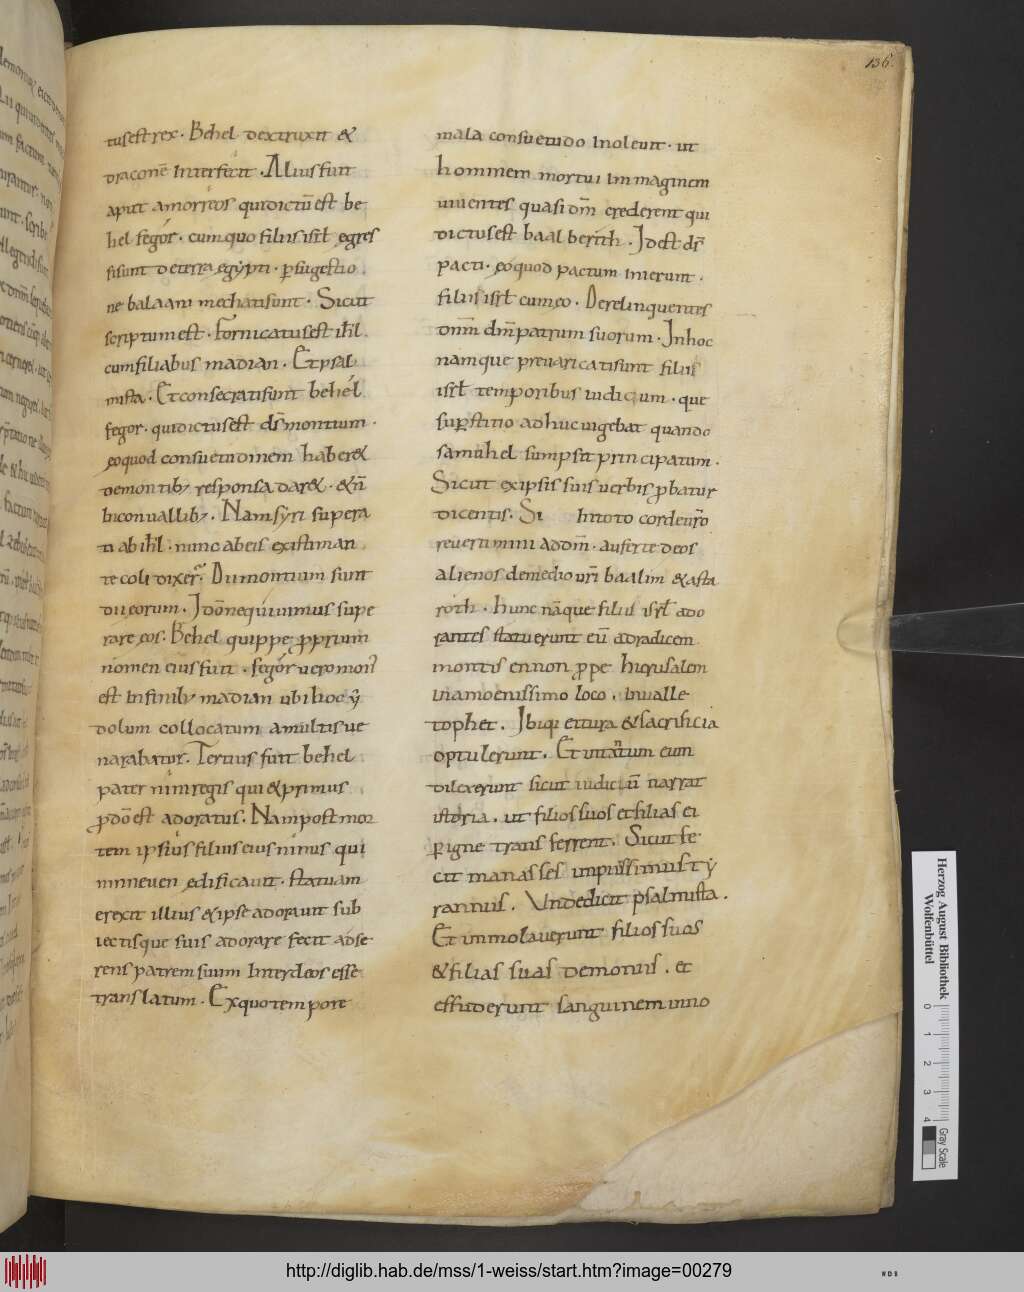 136.
tus est rex. Behel dextruxit &
draconē interfecit. Alius fuit
aput amorreos qui dictū est be
hel fegor. cum quo filii isrł egres
si sunt de terra egypti. p sugestio
ne balaam mechati sunt. Sicut
scriptum est. Fornicatus est ihł.
cum filiabus madian. Et psal
mista. Et consecrati sunt behel
fegor. qui dictus est ds montium.
eo quod consuetudinem haber&
demontib; responsa dar&. & n̄
bi conuallib;. Nam syri supera
ti ab ihł. nunc ab eis existiman
te coli dixer. Dii montium sunt
dii eorum. Idōnequiuimus supe
rare eos. Behel quippe proprium
nomen eius fuit. fegor uero mons
est in finib; madian ubi hoc y
dolum collocatum a multis ue
narabatur. Tertius fuit behel
pater nini regis qui & primus
p dō est adoratus. Nam post mor
tem ipsius filius eius ninus qui
ninneuen edificauit. statuam
erexit illius & ipse adorauit sub
iectisque suis adorare fecit adse
rens patrem suum inter deos esse
translatum. Ex quo tempore
mala consuetudo inoleuit. ut
hominem mortui immaginem
uiuentes quasi dm̄ crederent qui
dictus est baal berith. Id est ds
pacti. eo quod pactum inierunt.
filii isrł cum eo. Derelinquentes
dnm dm̄ patrum suorum. In hoc
namque preuaricati sunt filii
isrł temporibus iudicum. que
supstitio adhuc uigebat quando
samuhel sumpsit principatum.
Sicut ex ipsis suis uerbis pbatur
dicentis. Si in toto corde uro
reuertimini ad dm̄. auferte deos
alienos de medio uri baalim & asta
roth. hunc nāque filii isrł ado
rantes statuerunt eū ad radicem
montis ennon ppe hierusalem
in amoenissimo loco. in ualle
tophet. Ibiqi et tura & sacrificia
optulerunt. Et in tantum eum
dilexerunt sicut iudicū narrat
istoria. ut filios suos et filias ei
p igne transferrent. Sicut fe
cit manasses impiissimus ty
rannus. Unde dicit psalmista.
Et immolauerunt filios suos
& filias suas demoniis. et
effuderunt sanguinem inno
Herzog August Bibliothek
Wolfenbüttel
0 1 2 3 4
Gray Scale
http://diglib.hab.de/mss/1-weiss/start.htm?image=00279